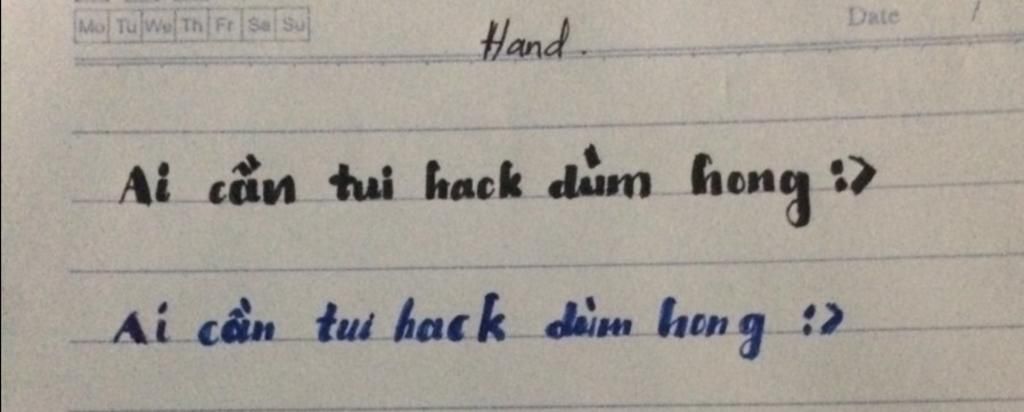 Mo Tu We Th Fr Sa Su
Date /
Hand.
Ai cần tui hack dùm hong :>
Ai cần tui hack dùm hong :>